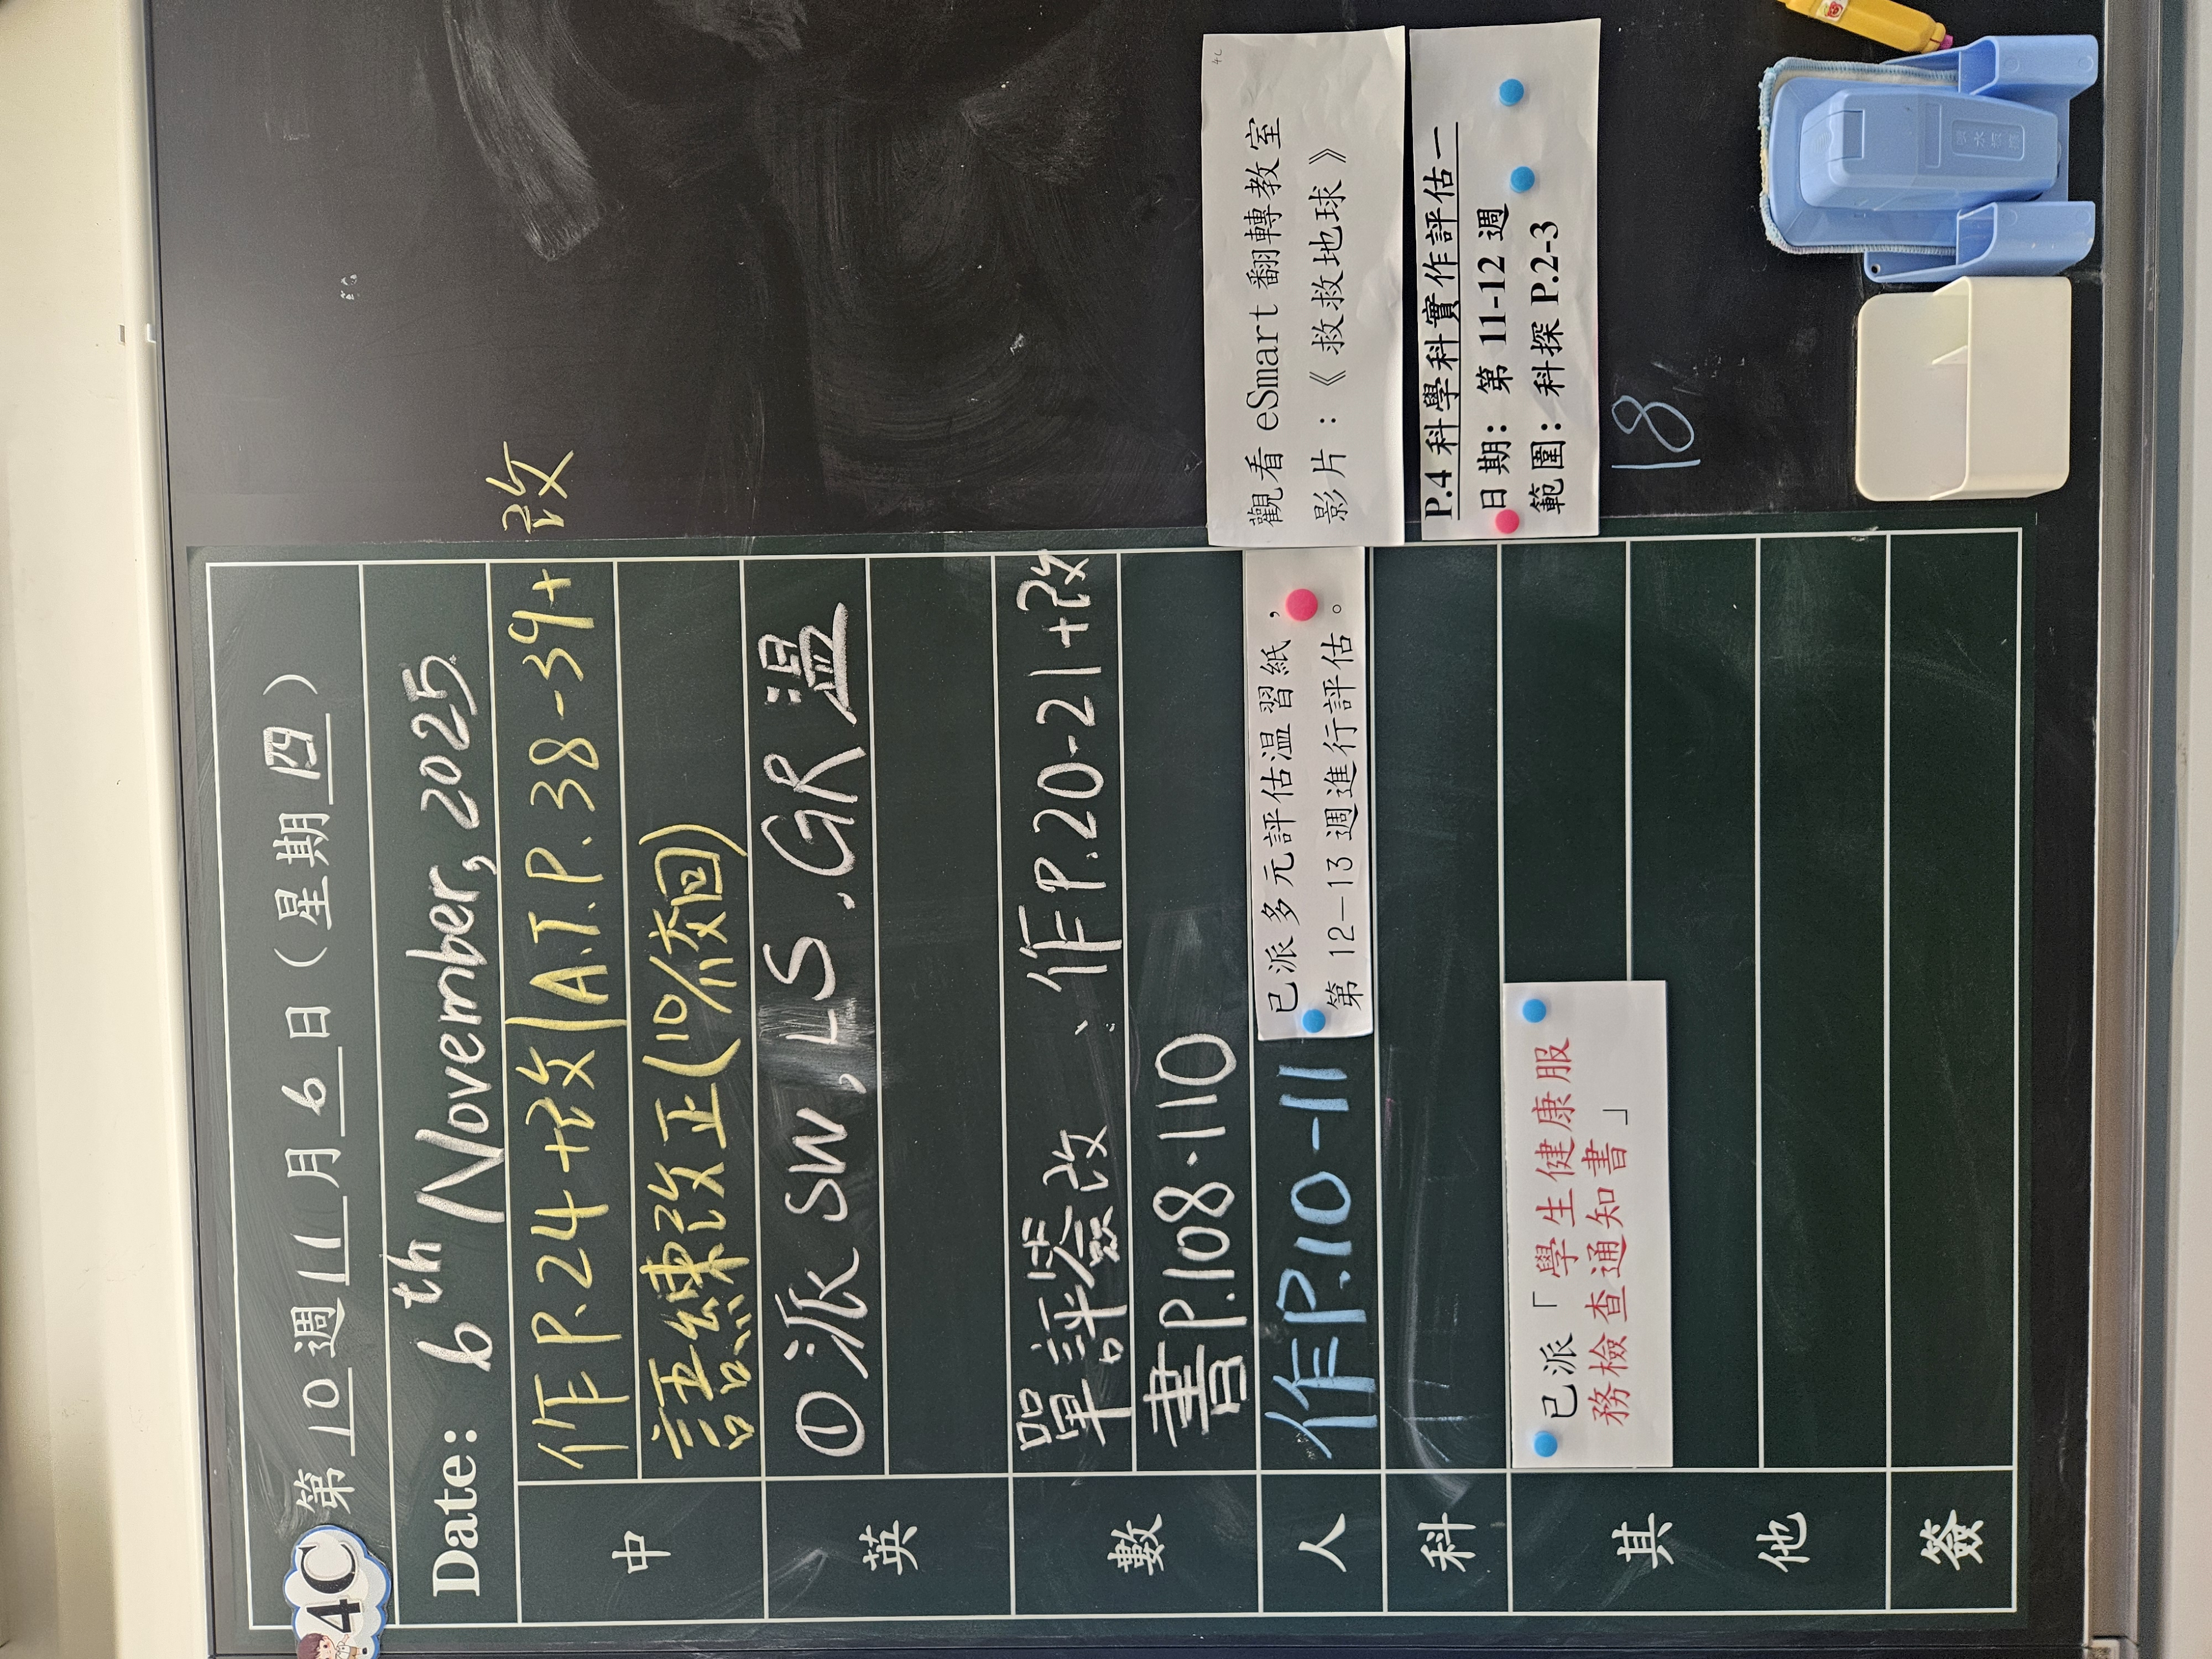 4C
第 10 週 11 月 6 日（星期 四）
Date: 6th November, 2025
中
作P.24+改|A.T.P.38-39+改
語練改正(10/11交回)
英
①派SW, LS, GR溫
數
單評簽改、作P.20-21+改
書P.108-110
人
作P.10-11
已派多元評估溫習紙，
第 12－13 週進行評估。
科
觀看 eSmart 翻轉教室
影片：《 救救地球》
4C
P.4 科學科實作評估一
日期：第 11-12 週
範圍：科探 P.2-3
18
其他
已派「學生健康服
務檢查通知書」
簽